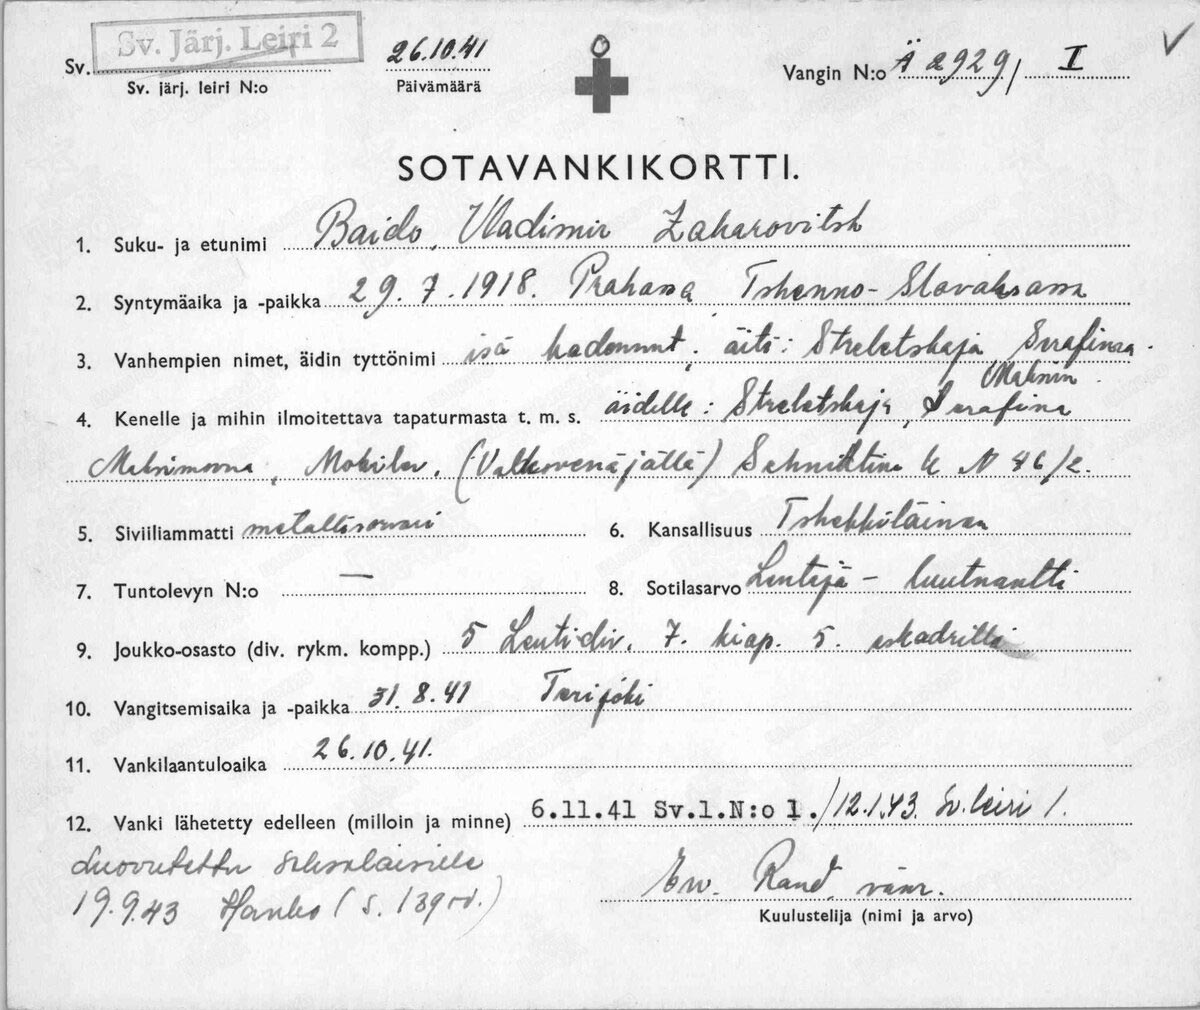 Sv. Järj. Leiri 2
Sv. 26.10.41 Vangin N:o Ä 2929/ I
Sv. järj. leiri N:o Päivämäärä
SOTAVANKIKORTTI.
1. Suku- ja etunimi Baido, Vladimir Zaharovitsh
2. Syntymäaika ja -paikka 29.7.1918. Prahassa Tshekko-Slovakiassa
3. Vanhempien nimet, äidin tyttönimi isä kadonnut, äiti: Streletskaja Serafina
Maksim
4. Kenelle ja mihin ilmoitettava tapaturmasta t. m. s. äidille: Streletskaja, Serafina
Maksimovna, Mohilev, (Valkovenäjällä) k N 46/2.
5. Siviiliammatti metallisorvari 6. Kansallisuus Tshekkiläinen
7. Tuntolevyn N:o — 8. Sotilasarvo Lentäjä - luutnantti
9. Joukko-osasto (div. rykm. kompp.) 5 Lentidiv. 7. kiap. 5. eskadrilla
10. Vangitsemisaika ja -paikka 31.8.41 Terijoki
11. Vankilaantuloaika 26.10.41.
12. Vanki lähetetty edelleen (milloin ja minne) 6.11.41 Sv.l.N:o 1./12.1.43. Sv.leiri 1.
Luovutettu saksalaisille
19.9.43 Hanko (s. 139 rd.)
Ew. Rand, vänr.
Kuulustelija (nimi ja arvo)